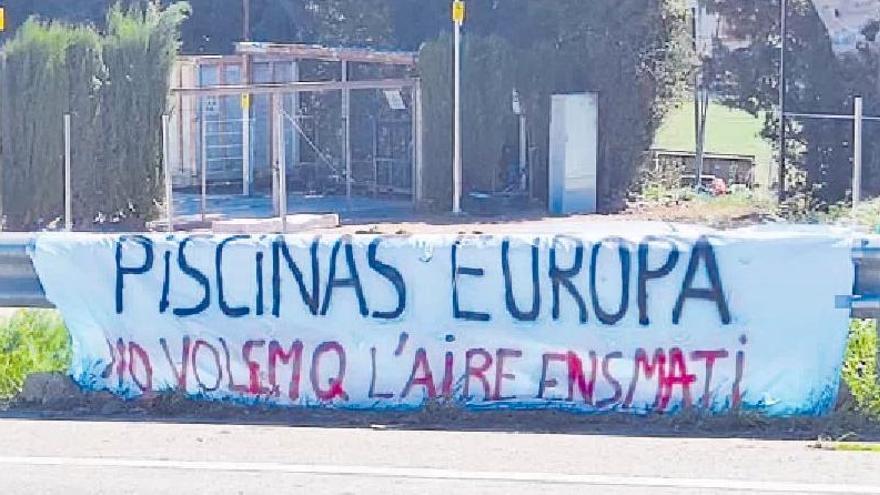 PISCINAS EUROPA
NO VOLEM Q L'AIRE ENS MATI